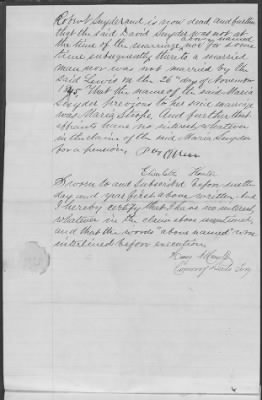 Robert Snyder and, is now dead and further
that the said David Snyder was not at
above named
the time of the marriage, nor for some
time subsequently thereto a married
man nor was not married by the
said Lewis on the 26" day of November
1845, That the name of the said Maria
Snyder previous to her said marriage
was Maria Stoope. And further that
affiants have no interest whatever
in the claim of the said Maria Snyder
for a pension,
Charlotte
Sworn to and Subscribed before me the
day and year first above written And
I hereby certify that I have no interest
whatever in the claim above mentioned,
and that the words "above named" were
interlined before execution